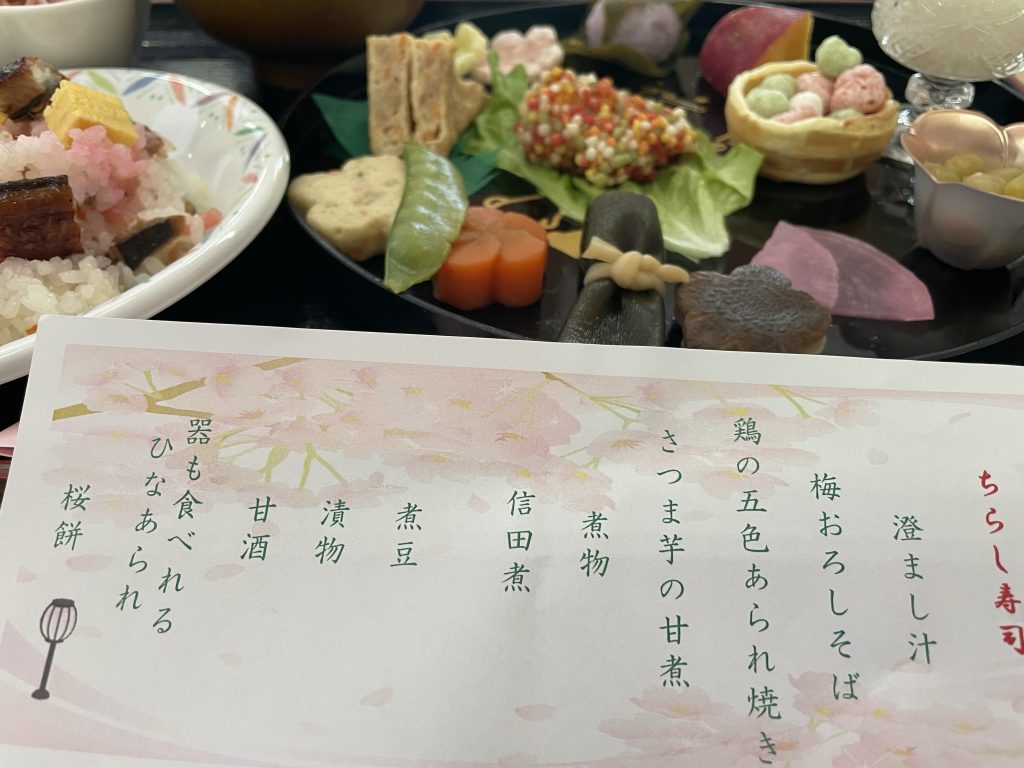 ちらし寿司
澄まし汁
梅おろしそば
鶏の五色あられ焼き
さつま芋の甘煮
煮物
信田煮
煮豆
漬物
甘酒
器も食べれる
ひなあられ
桜餅